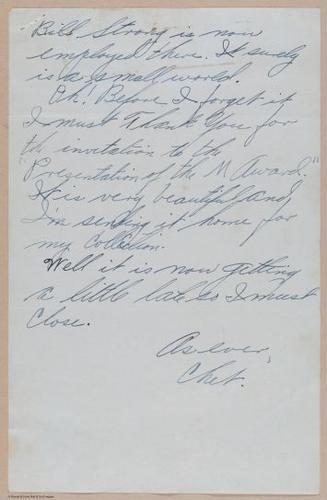 Bill Strong is now
employed there. It surely
is a small world.
Oh! Before I forget it
I must Thank You for
the invitation to the
"Presentation of the M Award."
It is very beautiful and
I'm sending it home for
my collection.
Well it is now getting
a little late so I must
Close.
As ever,
Chet.